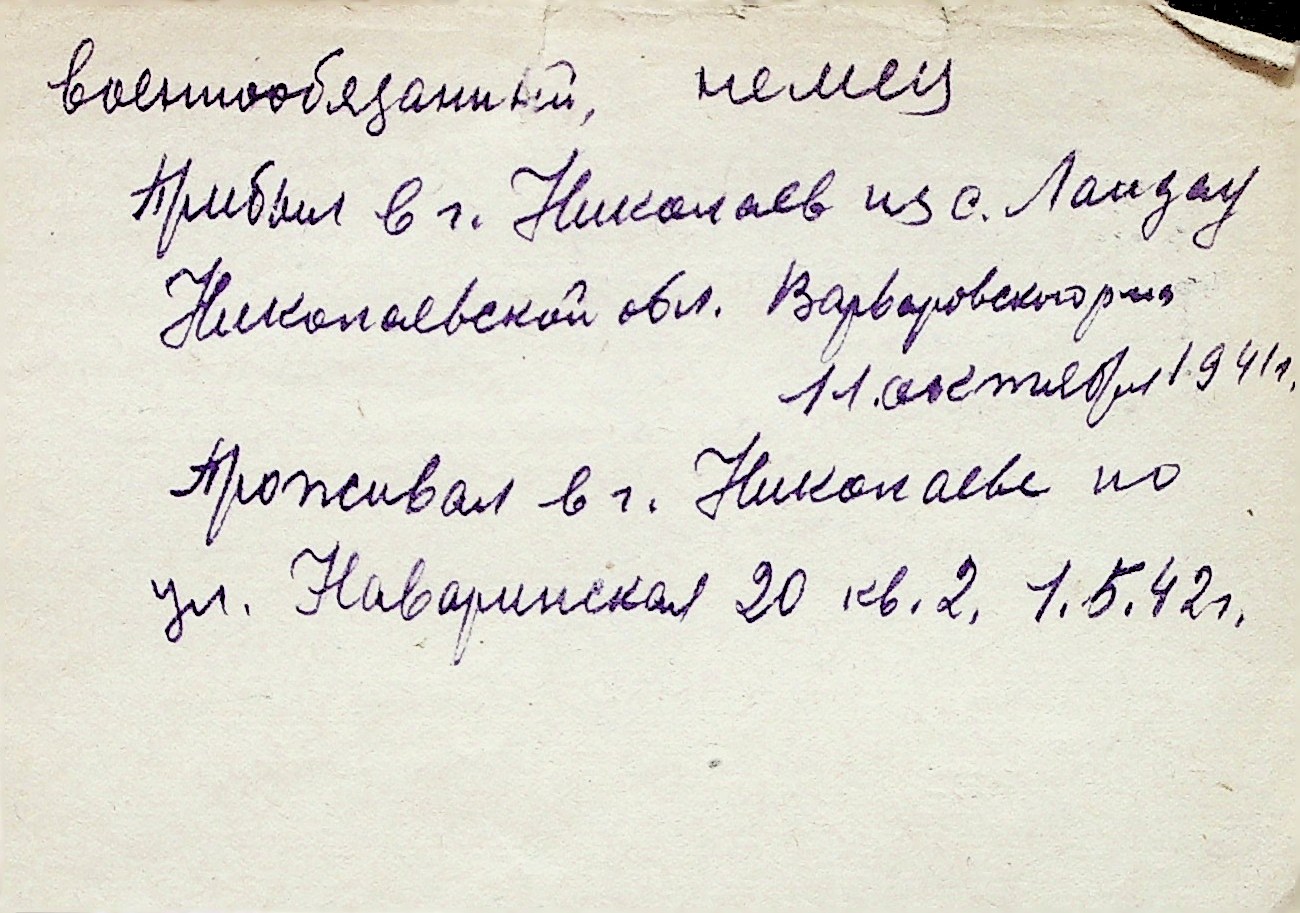 военнообязанный, немец
Прибыл в г. Николаев из с. Ландау
Николаевской обл. Варваровского р-на
11 октября 1941 г.
Проживал в г. Николаеве по
ул. Наваринская 20 кв. 2. 1.5.42 г.